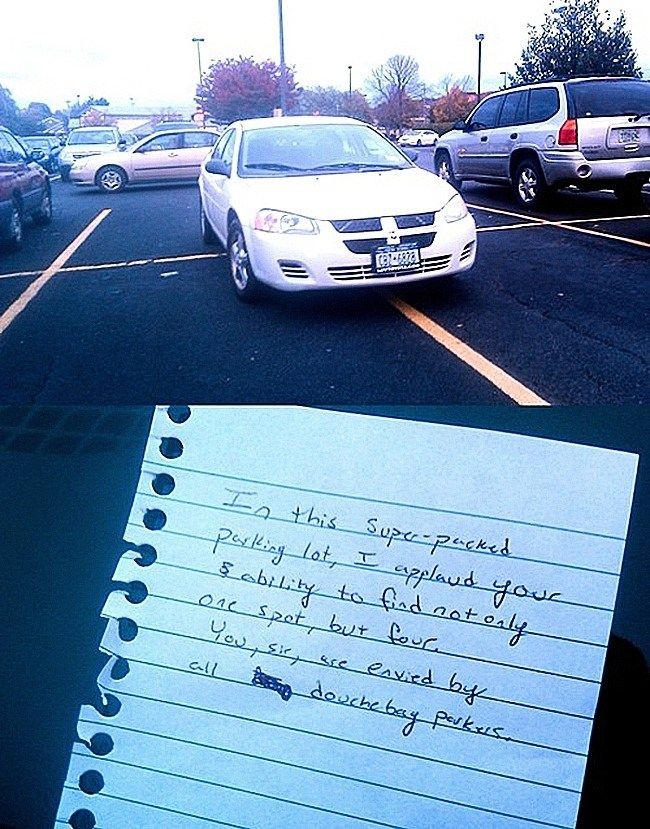 In this super-packed
parking lot, I applaud your
& ability to find not only
one spot, but four.
You, sir, are envied by
all douchebag parkers.